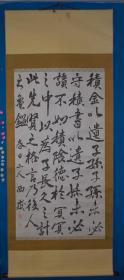 積金以遺子孫子孫未必
守積書以遺子孫子孫未必
讀不如積陰德於冥冥
之中以為子孫長久之計
此先賢之格言乃後人
之龜鑑